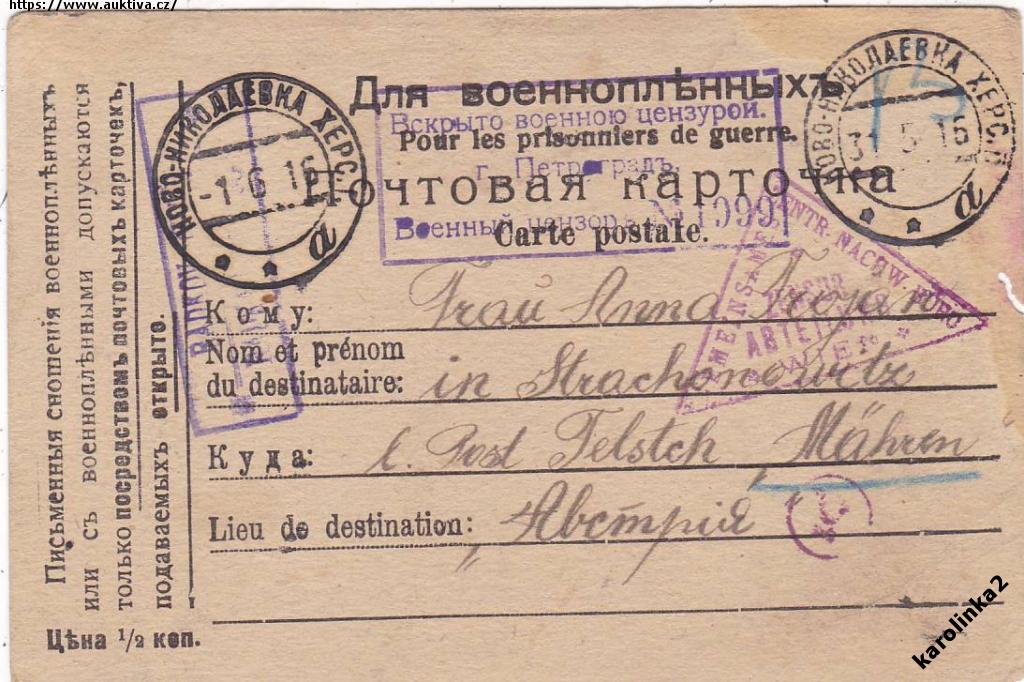 https://www.auktiva.cz/
Для военноплѣнныхъ
Вскрыто военною цензурой.
Pour les prisonniers de guerre.
г. Петроградъ
Почтовая карточка
Военный цензоръ № 1999
Carte postale.
НОВО-НИКОЛАЕВКА ХЕРС.
-1 6 16
а
НОВО-НИКОЛАЕВКА ХЕРС.
31 5 16
а
15
Кому:
Frau Anna Trojan
Nom et prénom
du destinataire:
in Strachonowitz
Куда:
l. Post Telstch Mähren
Lieu de destination:
Австрія
ABTEILUNG
Письменныя сношенія военноплѣнныхъ
или съ военноплѣнными допускаются
только посредствомъ почтовыхъ карточекъ,
подаваемыхъ открыто.
Цѣна 1/2 коп.
karolinka2